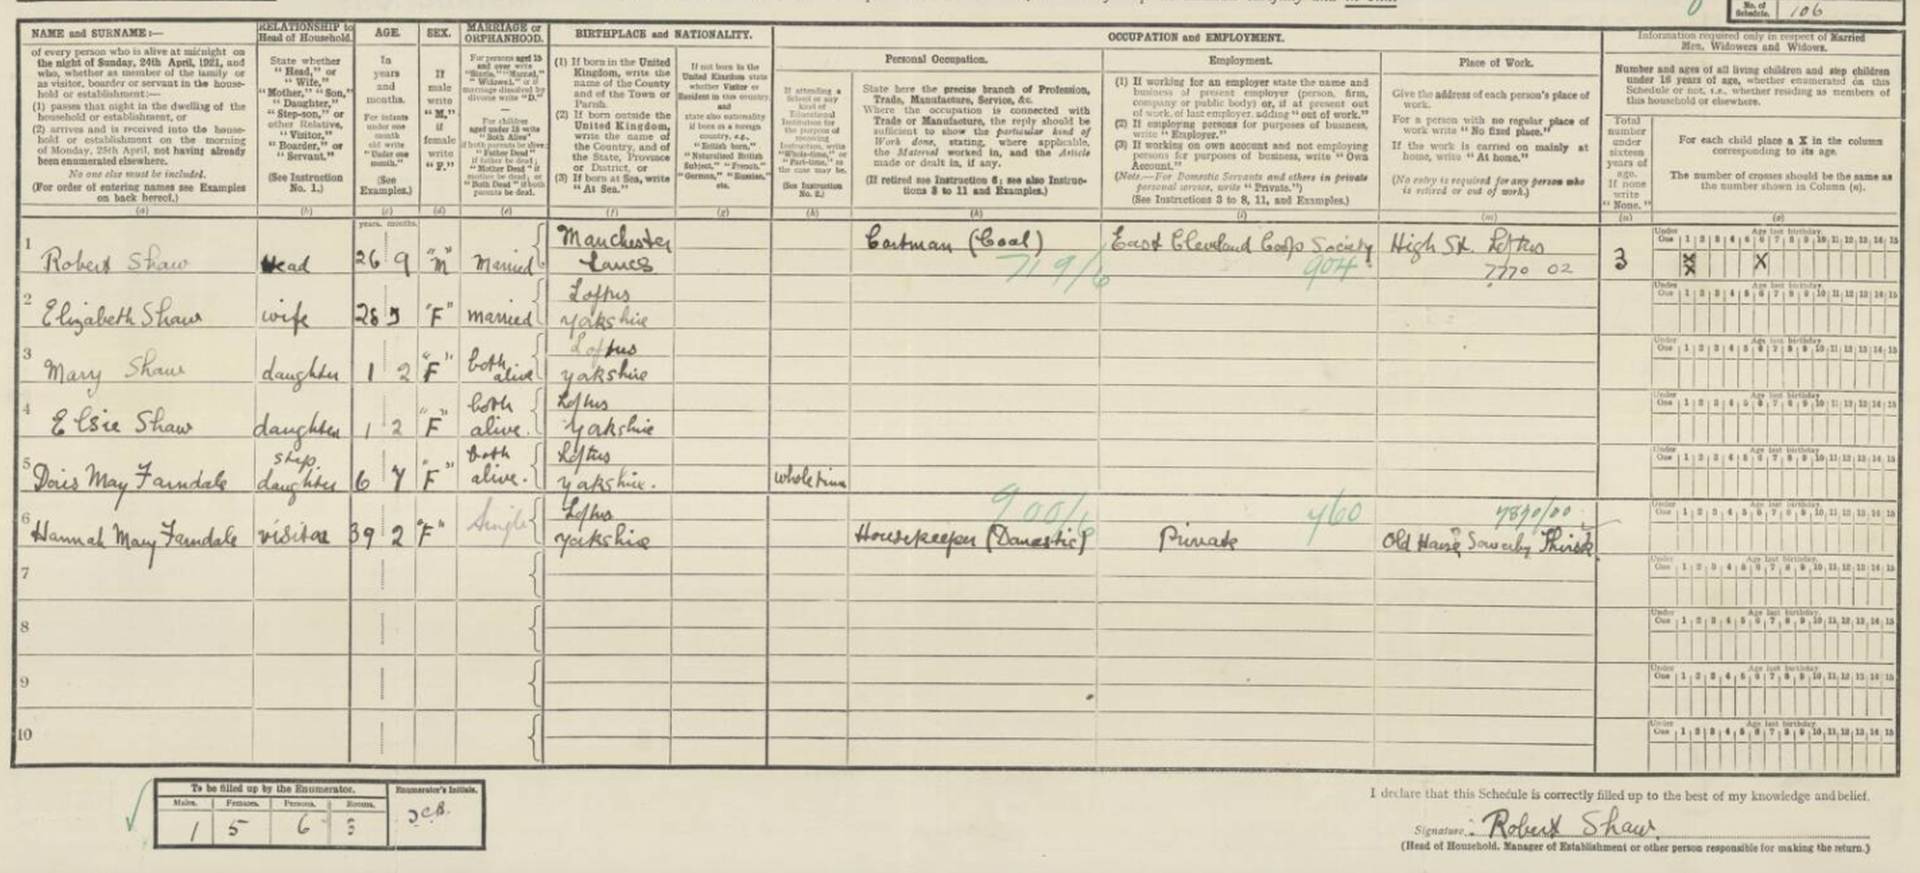 No. of Schedule. 106
NAME and SURNAME:—
of every person who is alive at midnight on
the night of Sunday, 24th April, 1921, and
who, whether as member of the family or
as visitor, boarder or servant in the house-
hold or establishment:—
(1) passes that night in the dwelling of the
household or establishment, or
(2) arrives and is received into the house-
hold or establishment on the morning
of Monday, 25th April, not having already
been enumerated elsewhere.
No one else must be included.
(For order of entering names see Examples
on back hereof.)
(a)
RELATIONSHIP to
Head of Household.
State whether
"Head," or
"Wife,"
"Mother," "Son,"
"Daughter,"
"Step-son," or
other Relative,
"Visitor,"
"Boarder," or
"Servant."
(See Instruction
No. 1.)
(b)
AGE.
In
years
and
months.
For infants
under one
month old
write
"Under one
month."
(See
Examples.)
(c)
years. months.
SEX.
If
male
write
"M,"
if
female
write
"F."
(d)
MARRIAGE or
ORPHANHOOD.
(e)
BIRTHPLACE and NATIONALITY.
(1) If born in the United
Kingdom, write the
name of the County
and of the Town or
Parish.
(2) If born outside the
United Kingdom,
write the name of
the Country, and of
the State, Province
or District, or
(3) If born at Sea, write
"At Sea."
(f)
(g)
(See Instruction
No. 2.)
(h)
OCCUPATION and EMPLOYMENT.
Personal Occupation.
State here the precise branch of Profession,
Trade, Manufacture, Service, &c.
Where the occupation is connected with
Trade or Manufacture, the reply should be
sufficient to show the particular kind of
Work done, stating, where applicable,
the Material worked in, and the Article
made or dealt in, if any.
(If retired see Instruction 6; see also Instruc-
tions 3 to 11 and Examples.)
(k)
Employment.
(1) If working for an employer state the name and
business of present employer (person, firm,
company or public body) or, if at present out
of work, of last employer, adding "out of work."
(2) If employing persons for purposes of business,
write "Employer."
(3) If working on own account and not employing
persons for purposes of business, write "Own
Account."
(Note.—For Domestic Servants and others in private
personal service, write "Private.")
(See Instructions 3 to 8, 11, and Examples.)
Place of Work.
Give the address of each person's place of
work.
For a person with no regular place of
work write "No fixed place."
If the work is carried on mainly at
home, write "At home."
(No entry is required for any person who
is retired or out of work.)
(m)
Information required only in respect of Married
Men, Widowers and Widows.
Number and ages of all living children and step children
under 16 years of age, whether enumerated on this
Schedule or not, i.e., whether residing as members of
this household or elsewhere.
Total
number
under
sixteen
years of
age.
If none
write
"None."
(n)
For each child place a X in the column
corresponding to its age.
The number of crosses should be the same as
the number shown in Column (n).
(o)
1 Robert Shaw Head 26 9 "M" Married Manchester Lancs Cartman (Coal) 719/6 East Cleveland Coop Society 904 High St. Loftus 7770 02 3 X X X
2 Elizabeth Shaw wife "F" married Loftus Yorkshire
3 Mary Shaw daughter 1 2 "F" both alive Loftus Yorkshire
4 Elsie Shaw daughter 1 2 "F" both alive. Loftus Yorkshire
5 Doris May Farndale step daughter 6 7 "F" both alive. Loftus Yorkshire. whole time
6 Hannah Mary Farndale visitor 39 2 "F" Single Loftus Yorkshire Housekeeper (Domestic) 900/6 Private 460 Old House Sowerby Thirsk
7
8
9
10
To be filled up by the Enumerator.
Males. Females. Persons. Rooms.
1 5 6 3
Enumerator's Initials.
I declare that this Schedule is correctly filled up to the best of my knowledge and belief.
Signature: Robert Shaw.
(Head of Household, Manager of Establishment or other person responsible for making the return.)